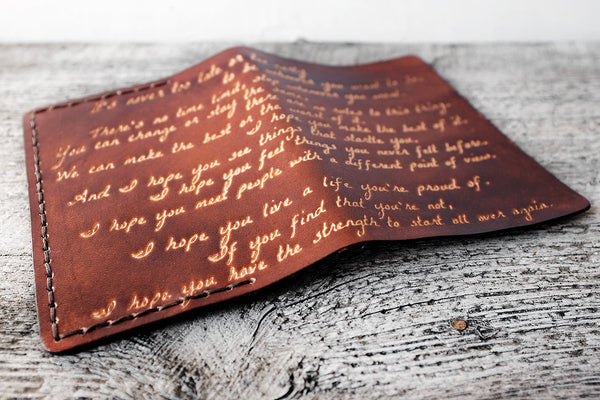 It's never too late or to be whoever you want to be.
There's no time limit
You can change or stay the to this thing.
We can make the best or the make the best of it.
And I hope you see things that startle you.
I hope you feel things you never felt before.
I hope you meet people with a different point of view.
I hope you live a life you're proud of.
If you find that you're not,
I hope you have the strength to start all over again.